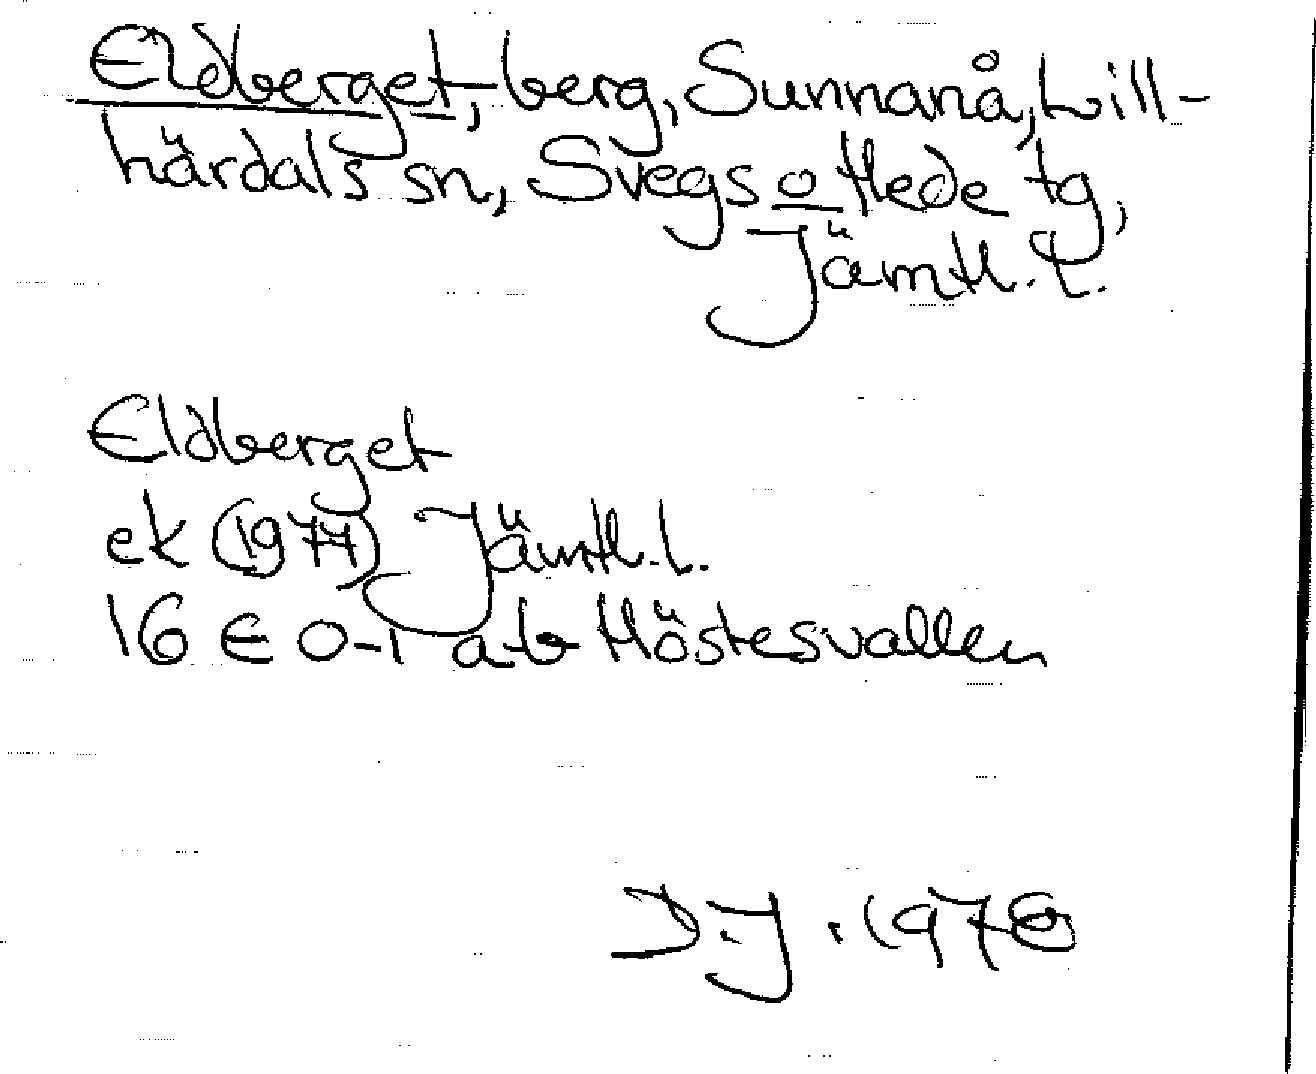 Eldberget, berg, Sunnanå, Lill-
härdals sn, Svegs o Hede tg,
Jämtl. l.
Eldberget
ek (1977) Jämtl. l.
16 E 0-1 a-b Höstesvallen
D.J. 1978